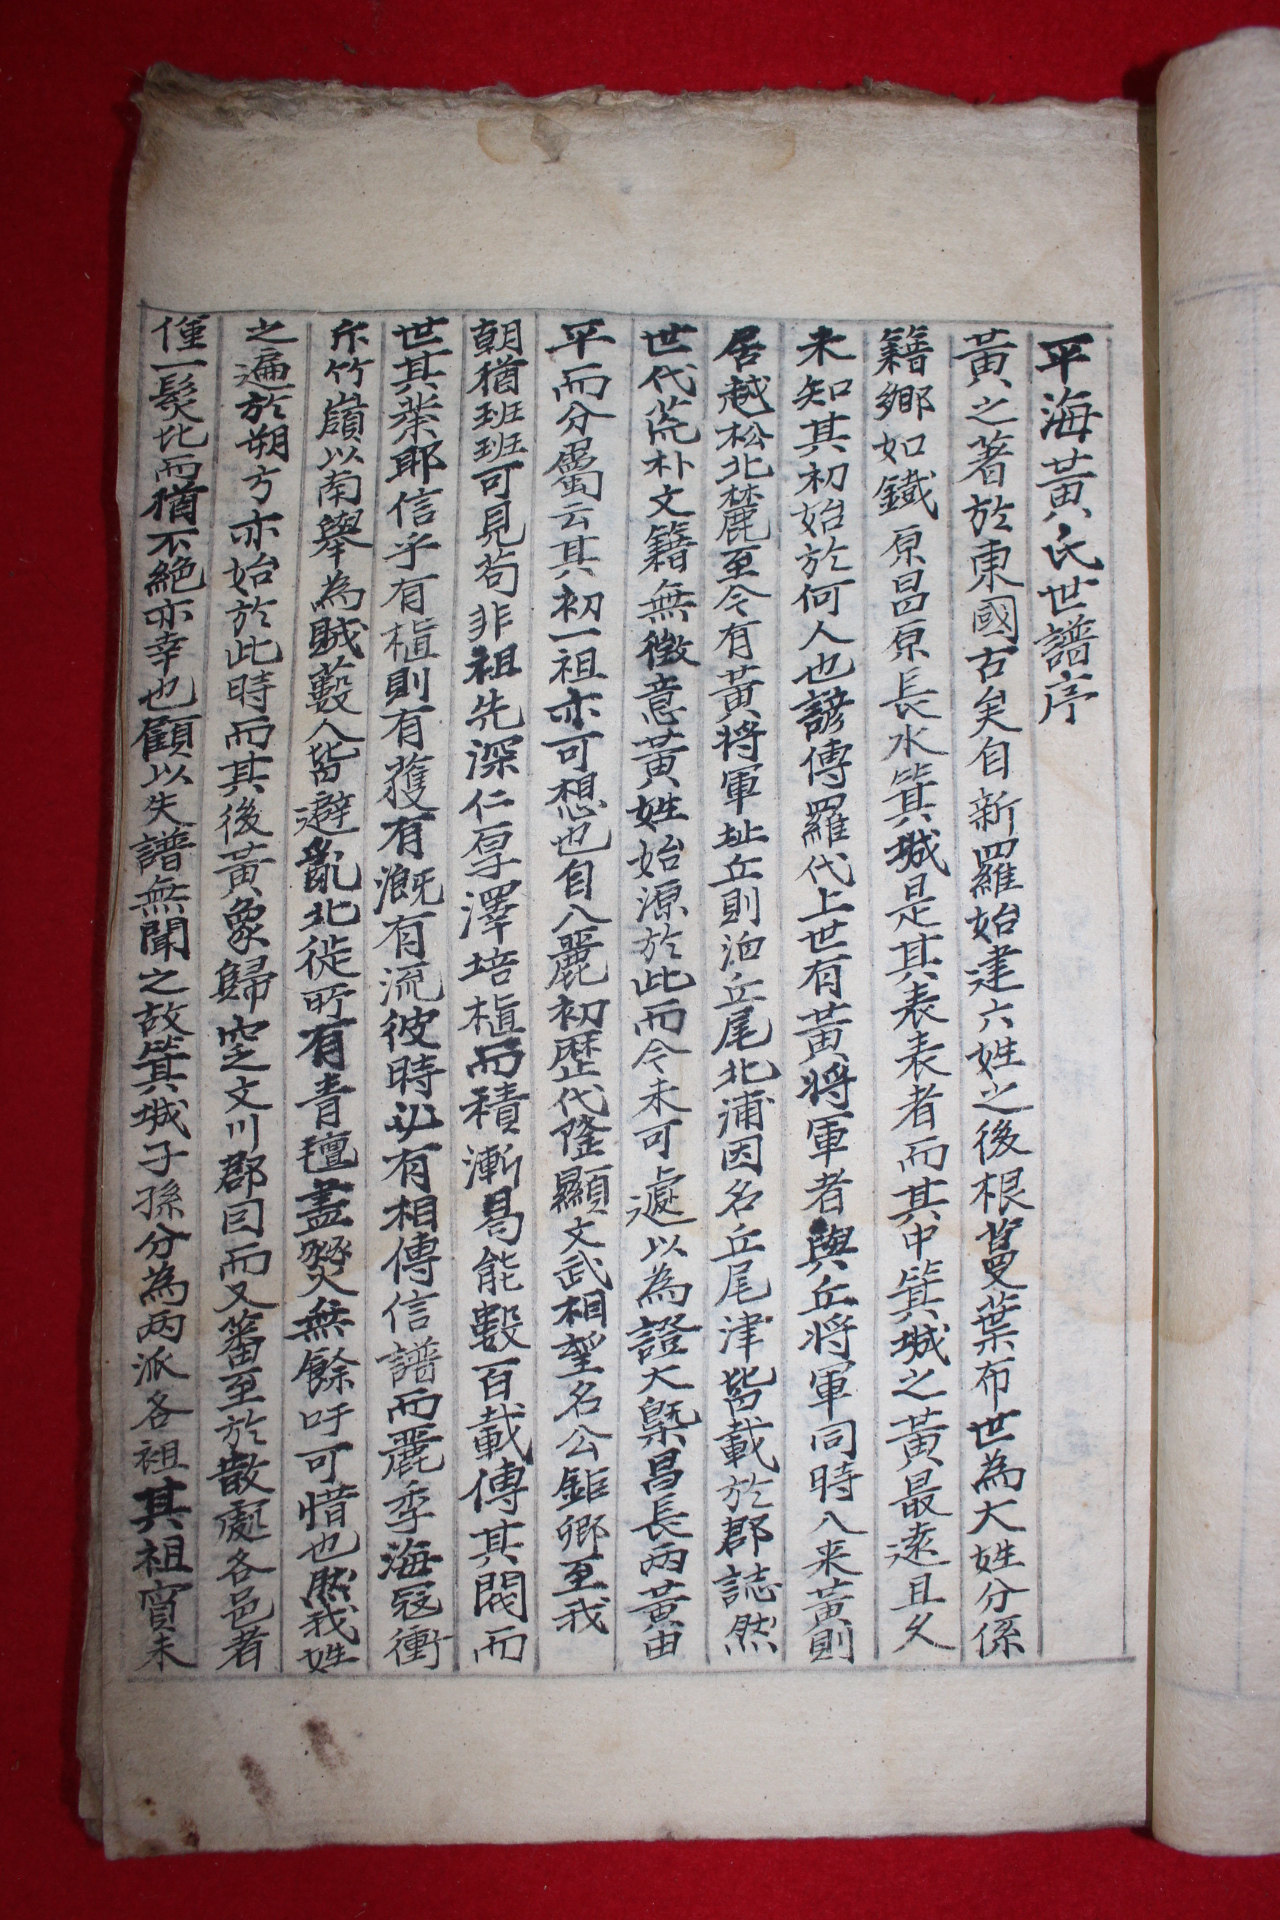 平海黃氏世譜序
黃之著於東國古矣自新羅始建六姓之後根蔓葉布世為大姓分係
籍鄕如鐵原昌原長水箕城是其表表者而其中箕城之黃最遠且久
未知其初始於何人也諺傳羅代上世有黃將軍者與丘將軍同時入来黃則
居越松北麓至今有黃將軍址丘則泊丘尾北浦因名丘尾津皆載於郡誌然
世代荒朴文籍無徵意黃姓始源於此而今未可遽以為證大槩昌長兩黃由
平而分屬云其初一祖亦可想也自入麗初歷代隆顯文武相望名公鉅卿至我
朝猶班班可見苟非祖先深仁厚澤培植而積漸曷能數百載傳其閥而
世其業耶信乎有植則有獲有漑有流彼時必有相傳信譜而麗季海寇衝
斥竹嶺以南擧為賊藪人皆避亂北徙所有青氊盡燹無餘吁可惜也然我姓
之遍於朔方亦始於此時而其後黃象歸定文川郡因而又蕃至於散處各邑者
僅一髮比而猶不絶亦幸也顧以失譜無聞之故箕城子孫分為両派各祖其祖實未